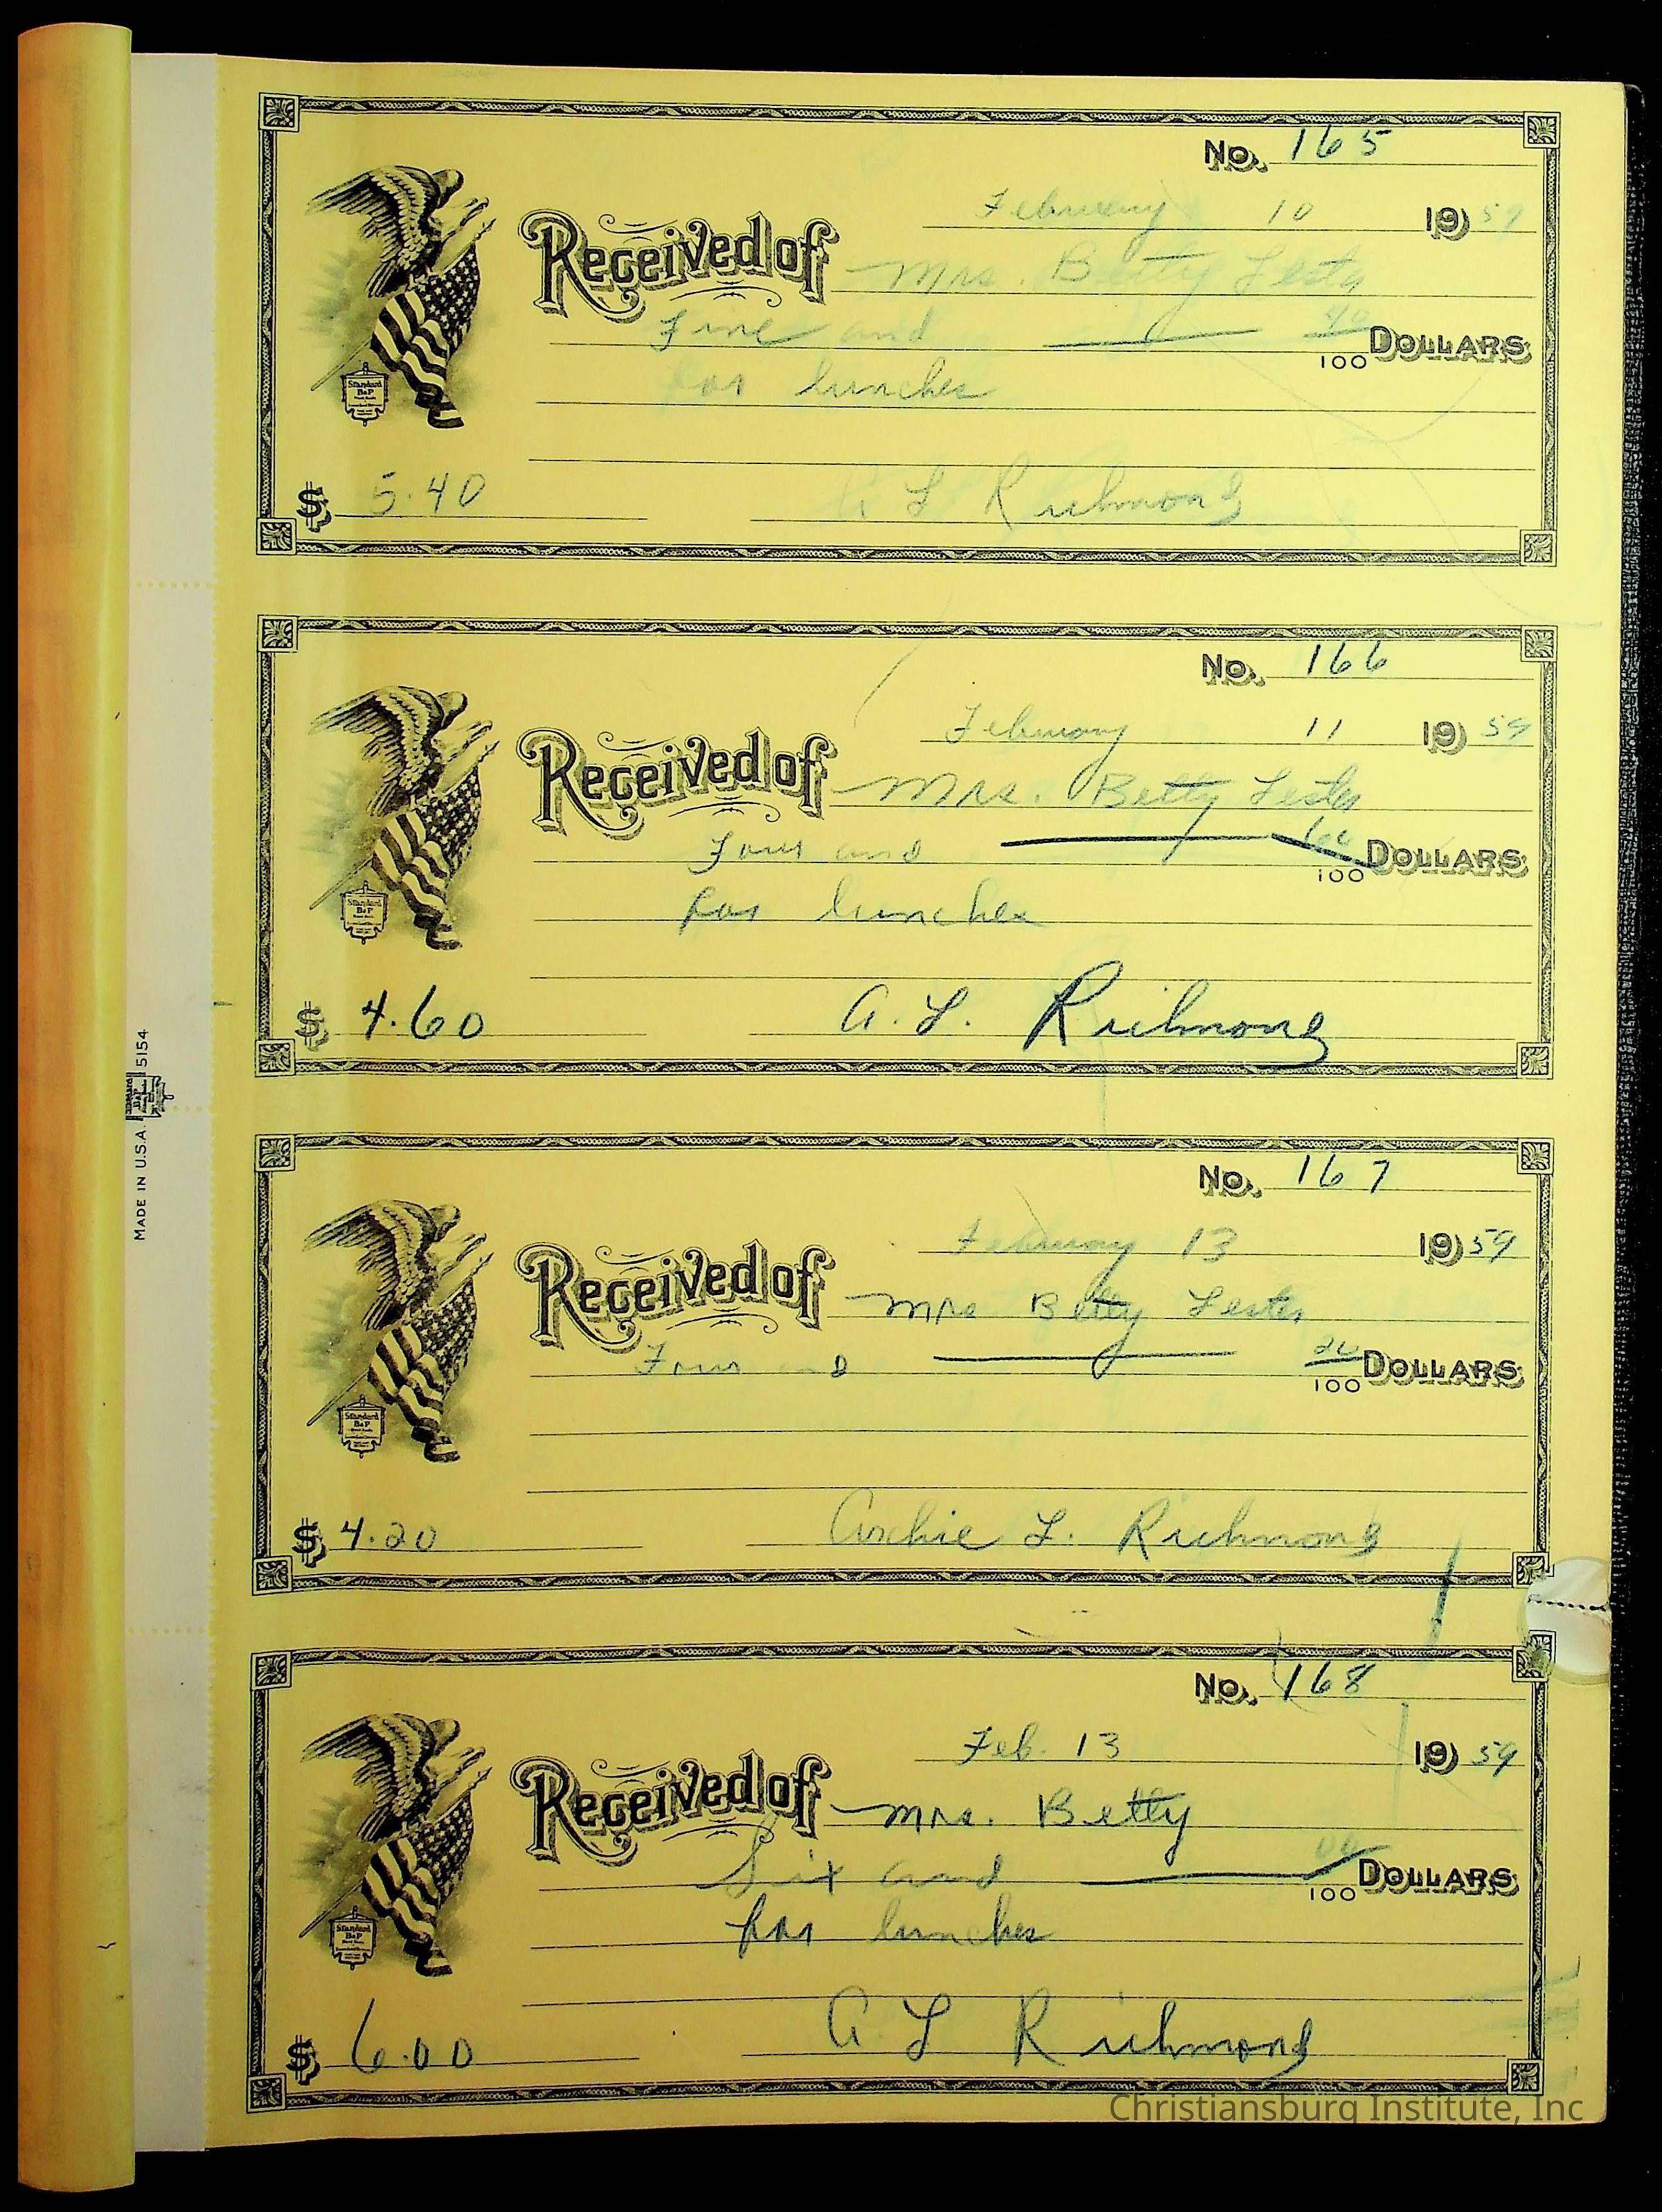 No. 165
February 10 1959
Received of Mrs. Betty Lester
Five and 40/100 Dollars
for lunches
$ 5.40 A L Richmond
Standard
B&P
No. 166
February 11 1959
Received of Mrs. Betty Lester
Four and 60/100 Dollars
for lunches
$ 4.60 A. L. Richmond
Standard
B&P
No. 167
February 13 1959
Received of Mrs Betty Lester
Four and 20/100 Dollars
$ 4.20 Archie L. Richmond
Standard
B&P
No. 168
Feb. 13 1959
Received of Mrs. Betty
Six and 00/100 Dollars
for lunches
$ 6.00 A L Richmond
Standard
B&P
MADE IN U.S.A. 5154
Christiansburg Institute, Inc